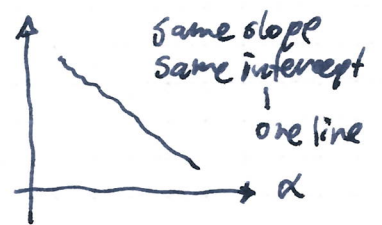 same slope
same intercept
one line
α